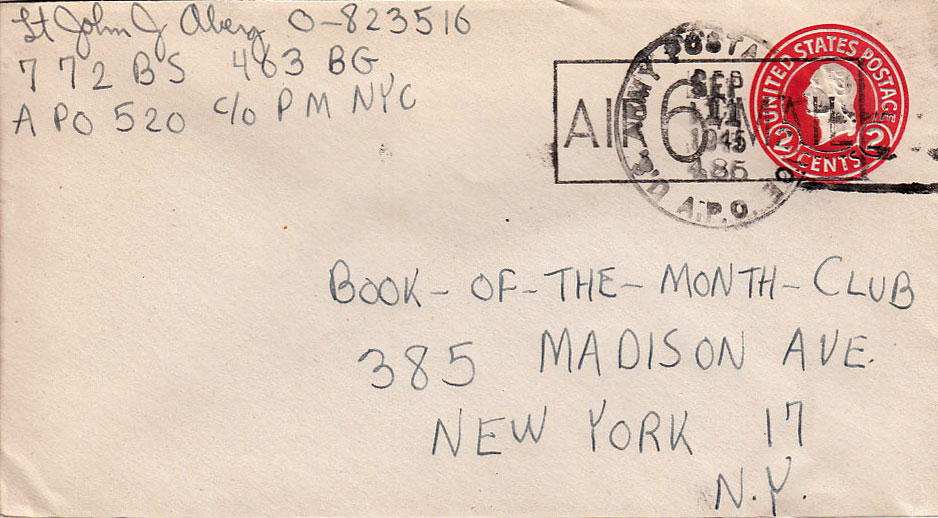 Lt John J Aberg O-823516
772 BS 483 BG
APO 520 c/o PM NYC
U.S. ARMY POSTAL
SEP
11
1945
486
A.P.O.
AIR 6¢ MAIL
UNITED STATES POSTAGE
2 CENTS 2
BOOK-OF-THE-MONTH-CLUB
385 MADISON AVE.
NEW YORK 17
N.Y.